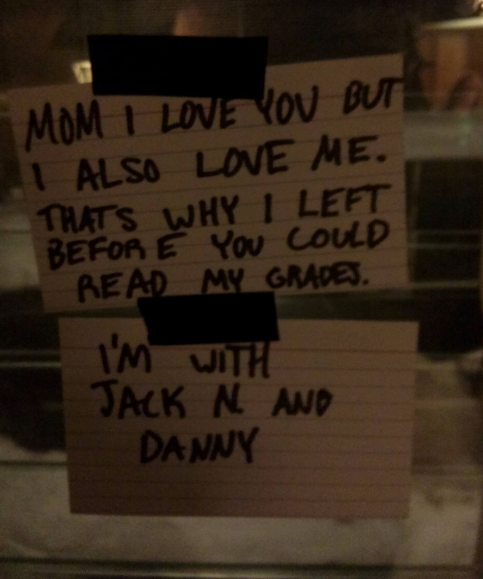 MOM I LOVE YOU BUT
I ALSO LOVE ME.
THATS WHY I LEFT
BEFORE YOU COULD
READ MY GRADES.
I'M WITH
JACK N. AND
DANNY